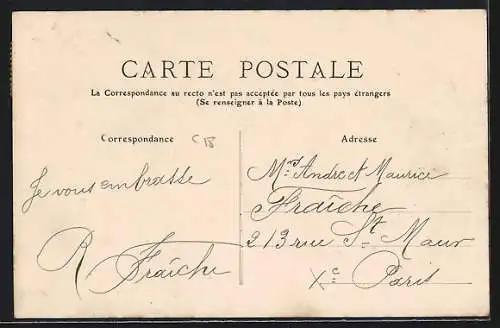 CARTE POSTALE
La Correspondance au recto n'est pas acceptée par tous les pays étrangers
(Se renseigner à la Poste)
Correspondance
Je vous embrasse
R Fraîche
Adresse
Mrs André et Maurice
Fraîche
213 rue St Maur
Xe Paris